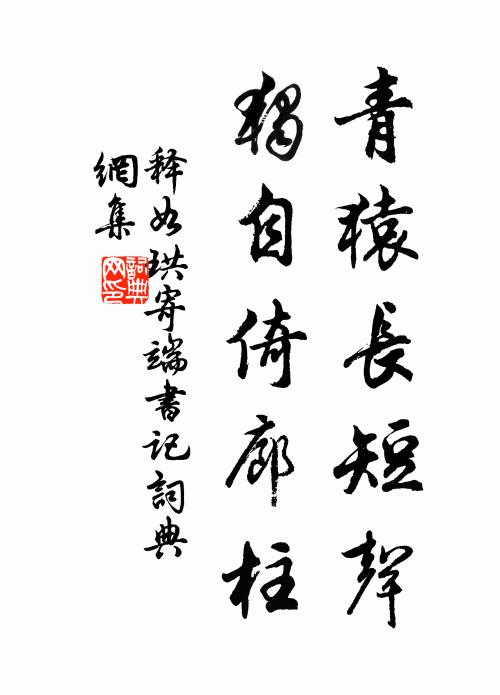 青猿長短聲
獨自倚廊柱
释如珙寄端書记詞典
網集
詞典網印